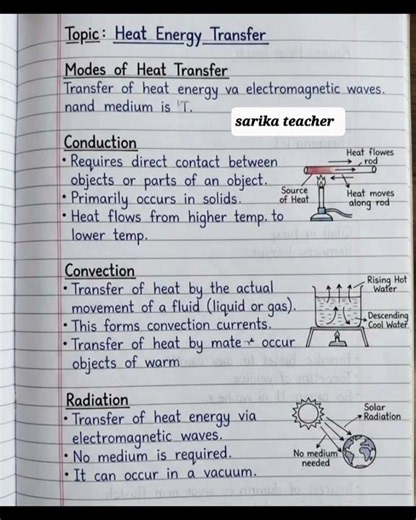 Topic: Heat Energy Transfer
Modes of Heat Transfer
Transfer of heat energy va electromagnetic waves.
nand medium is 'T.
sarika teacher
Conduction
• Requires direct contact between
objects or parts of an object.
• Primarily occurs in solids.
• Heat flows from higher temp. to
lower temp.
Heat flowes
rod
Source
of Heat
Heat moves
along rod
Convection
• Transfer of heat by the actual
movement of a fluid (liquid or gas).
• This forms convection currents.
• Transfer of heat by mate occur
objects of warm
Rising Hot
Water
Descending
Cool Water
Radiation
• Transfer of heat energy via
electromagnetic waves.
• No medium is required.
• It can occur in a vacuum.
Solar
Radiation
No medium
needed